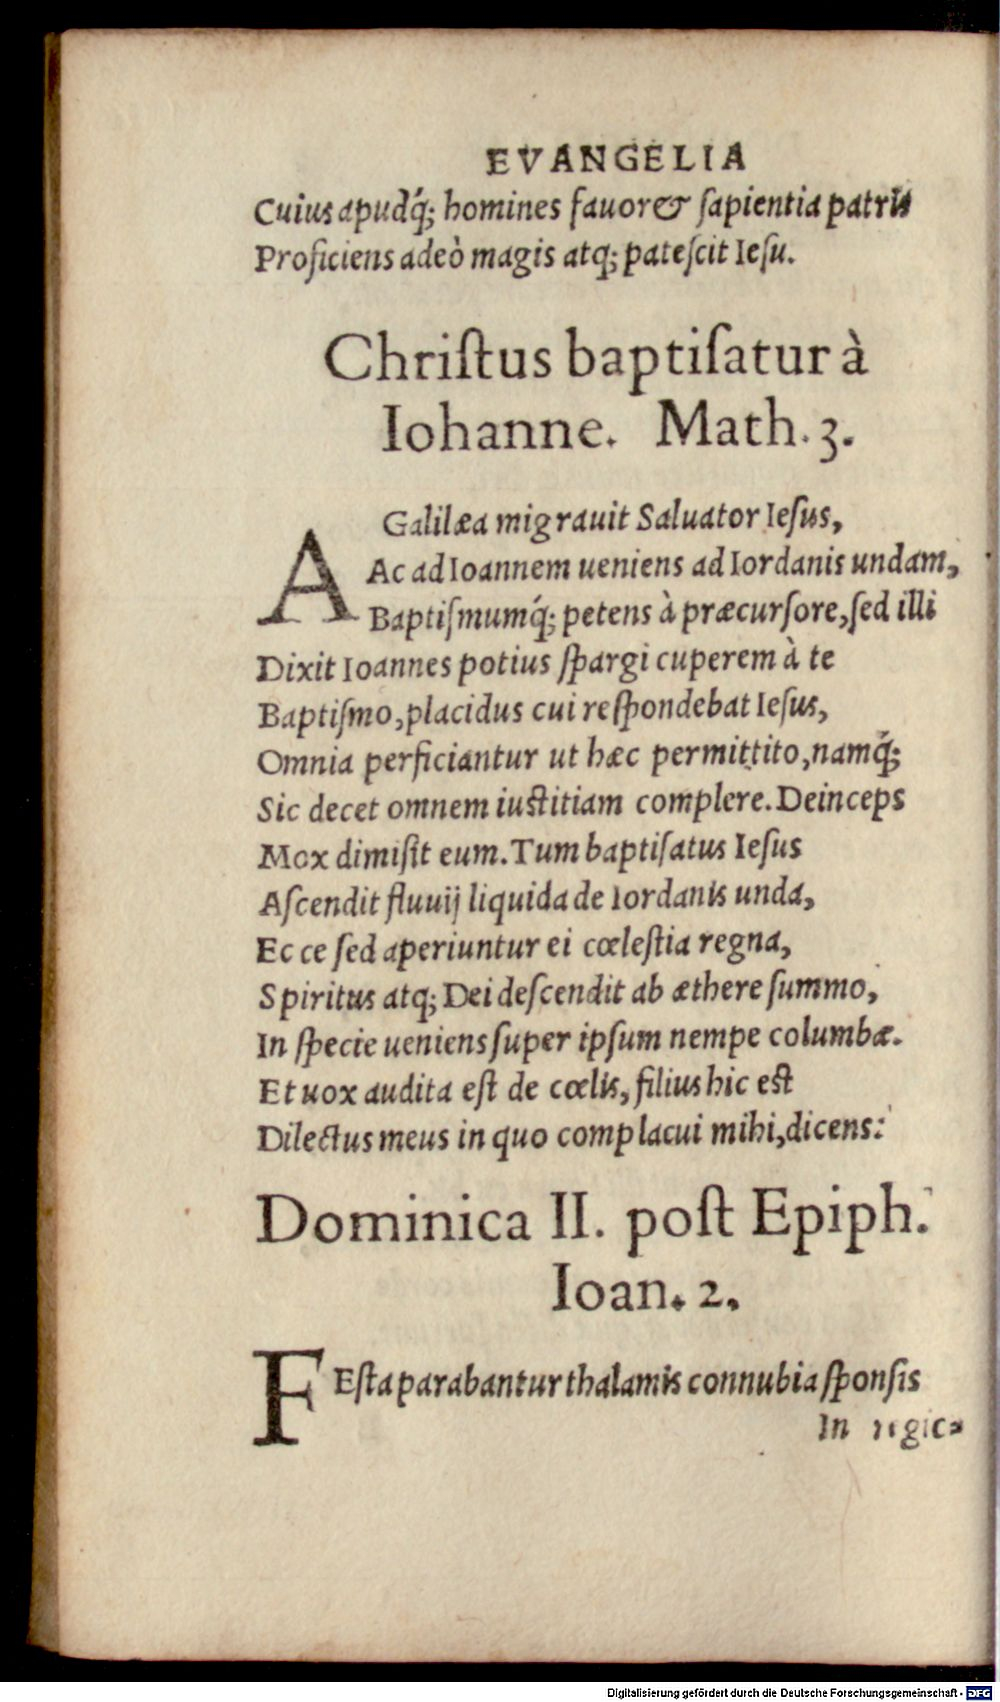 EVANGELIA
Cuius apudq́; homines fauor & ſapientia patris
Proficiens adeò magis atq; pateſcit Ieſu.
Chriſtus baptiſatur à
Iohanne. Math. 3.
A Galilæa migrauit Saluator Ieſus,
Ac ad Ioannem ueniens ad Iordanis undam,
Baptiſmumq́; petens à præcurſore, ſed illi
Dixit Ioannes potius ſpargi cuperem à te
Baptiſmo, placidus cui reſpondebat Ieſus,
Omnia perficiantur ut hæc permittito, namq́;
Sic decet omnem iuſtitiam complere. Deinceps
Mox dimiſit eum. Tum baptiſatus Ieſus
Aſcendit fluuij liquida de Iordanis unda,
Ecce ſed aperiuntur ei cœleſtia regna,
Spiritus atq; Dei deſcendit ab æthere ſummo,
In ſpecie ueniens ſuper ipſum nempe columbæ.
Et uox audita eſt de cœlis, filius hic eſt
Dilectus meus in quo complacui mihi, dicens:
Dominica II. poſt Epiph.
Ioan. 2.
FEſta parabantur thalamis connubia ſponſis
In regio
Digitalisierung gefördert durch die Deutsche Forschungsgemeinschaft - DFG